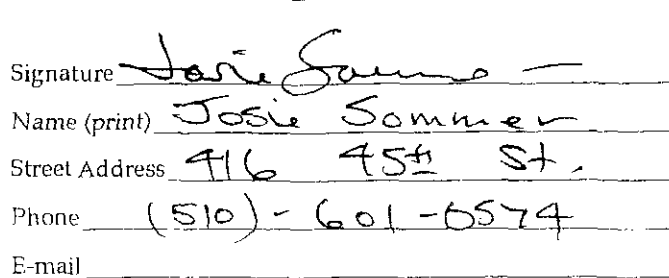 Signature Josie Sommer
Name (print) Josie Sommer
Street Address 416 45th St.
Phone (510) - 601 - 0574
E-mail